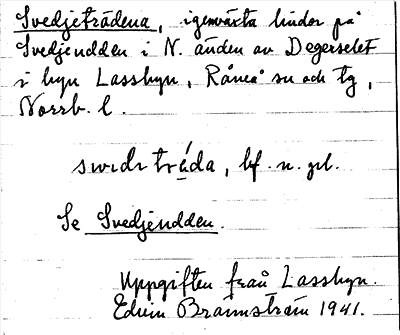 Svedjeträdena, igenväxta lindor på
Svedjeudden i N. änden av Degerselet
i byn Lassbyn, Råneå sn och tg,
Norrb. l.
swedsträda, bf. n. pl.
Se Svedjeudden.
Uppgiften från Lassbyn.
Edvin Brännström 1941.